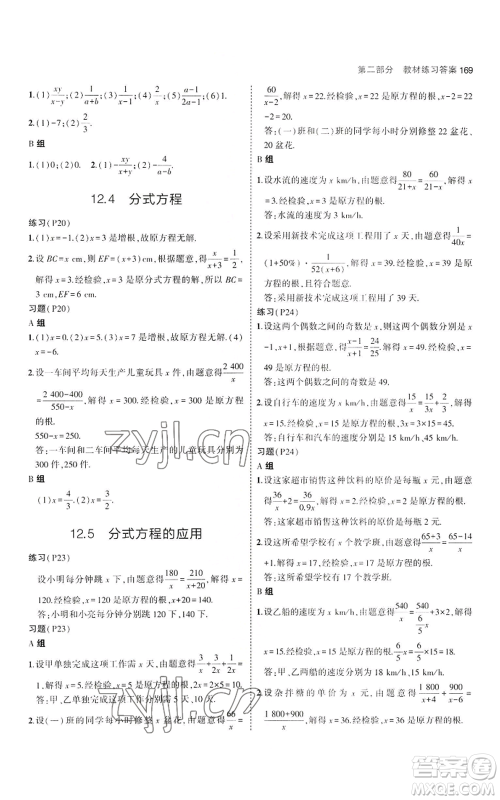 第二部分 教材练习答案 169
1.(1) xy/(x-y);(2) 1/(a+b);(3) x/y;(4) (a-1)/(a(a+1)).
2.(1)-6/7;(2) 2/3.
B 组
1.(1)0;(2)0. 2.(1)-xy/(x+y);(2) 4/(a-b).
12.4 分式方程
练习(P20)
1.(1)x=-1.(2)x=3 是增根,故原方程无解.
2.设 BC=x cm,则 EF=(x+3) cm,根据题意,得 x/(x+3)=1/2,
解得 x=3.经检验,x=3 是原分式方程的解.所以,BC=3 cm,EF=6 cm.
习题(P20)
A 组
1.(1)x=0.(2)x=5.(3)x=1 是增根,故原方程无解.(4)x=2.
2.设一车间平均每天生产儿童玩具 x 件,由题意得 2 400/x
=(2 400-400)/(550-x),解得 x=300.经检验,x=300 是原方程的根.
550-x=250.
答:一车间和二车间平均每天生产的儿童玩具分别为 300 件和 250 件.
B 组
(1)x=4/3.(2)x=3/2.
12.5 分式方程的应用
练习(P23)
设小明每分钟跳 x 下,由题意得 180/x=210/(x+20),解得 x=120.经检验,x=120 是原方程的根,x+20=140.
答:小明和小亮每分钟分别跳 120 下、140 下.
习题(P23)
A 组
1.设甲单独完成这项工作需 x 天,由题意得 3/x+9/(2x)=
2.设(一)班的同学每小时修整 x 盆花,由题意得 66/x=
60/(x-2),解得 x=22.经检验,x=22 是原方程的根,x-2=20.
答:(一)班和(二)班的同学每小时分别修整 22 盆花、20 盆花.
B 组
1.设水流的速度为 x km/h,由题意得 80/(21+x)=60/(21-x),解得 x=3.经检验,x=3 是原方程的根.
答:水流的速度为 3 km/h.
2.设采用新技术完成这项工作用了 x 天,由题意得 1/(40x)=
(1+50%)·1/(52(x+6)),解得 x=39.经检验,x=39 是原方程的根.
答:采用新技术完成这项工作用了 39 天.
练习(P24)
1.设这两个偶数之间的奇数是 x,由题意得 (x-1)/(x+1)=24/25,解得 x=49.经检验,x=49 是原方程的根.
答:这两个偶数之间的奇数是 49.
2.设自行车的速度为 x km/h,由题意得 15/x=15/(3x)+2/3,解得 x=15.经检验,x=15 是原方程的根,3x=3×15=45.
答:自行车和汽车的速度分别为 15 km/h、45 km/h.
习题(P24)
A 组
1.设这家超市销售这种饮料的原价是每瓶 x
答:这家超市销售这种饮料的原价是每瓶
2.设这所希望学校有 x 个教学班,由题意得 (65+3)/x=(65-14)/
答:这所希望学校有
B 组
1.设乙船的速度为 x km/h,由题意得
x=15.经检验,x=15 是原方程的根,6/5x=6/5×15=18.
答:甲、乙两船的速度分别为 18 km/h、15 km/h.
2.设杂拌糖的单价为 x 元,由题意得 (1 800+900)/x=
zyjl.cn